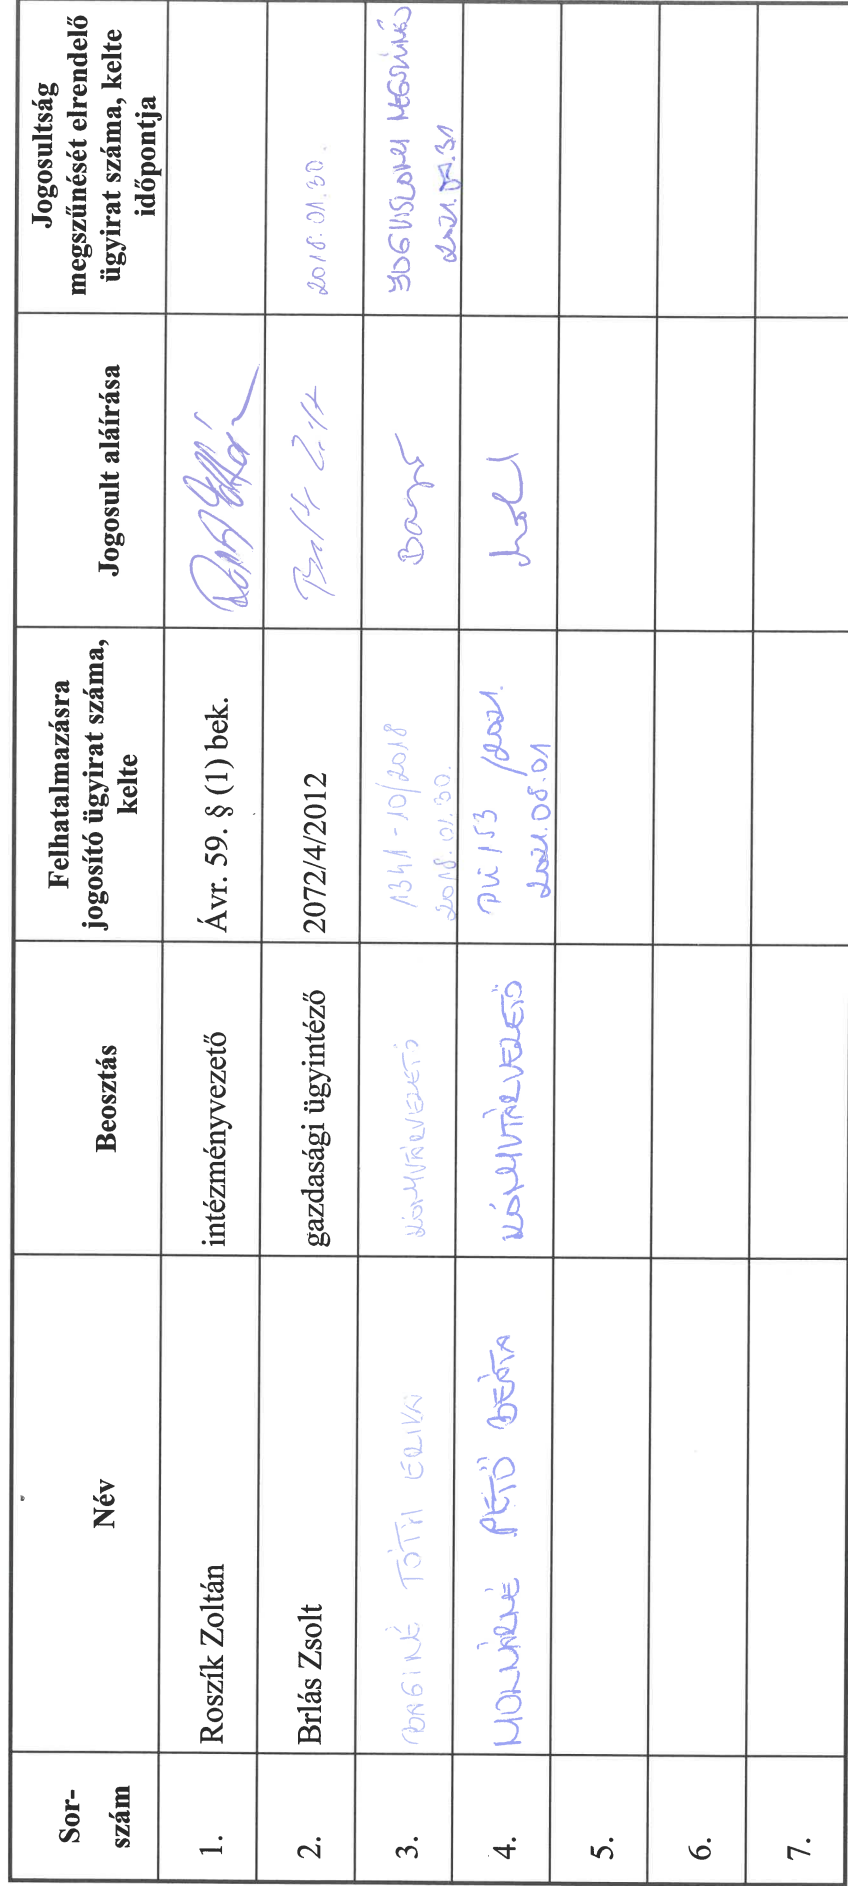 Sor-
szám
Név
Beosztás
Felhatalmazásra
jogosító ügyirat száma,
kelte
Jogosult aláírása
Jogosultság
megszűnését elrendelő
ügyirat száma, kelte
időpontja
1.
Roszík Zoltán
intézményvezető
Ávr. 59. § (1) bek.
2.
Brlás Zsolt
gazdasági ügyintéző
2072/4/2012
2018.01.30.
3.
BAGINÉ TÓTH ERIKA
KÖNYVTÁRVEZETŐ
1341-10/2018
2018.01.30.
JOGVISZONY MEGSZŰNÉS
2021.07.31
4.
MOLNÁRNÉ PETŐ BEÁTA
KÖNYVTÁRVEZETŐ
153 /2021.
2021.08.01
5.
6.
7.